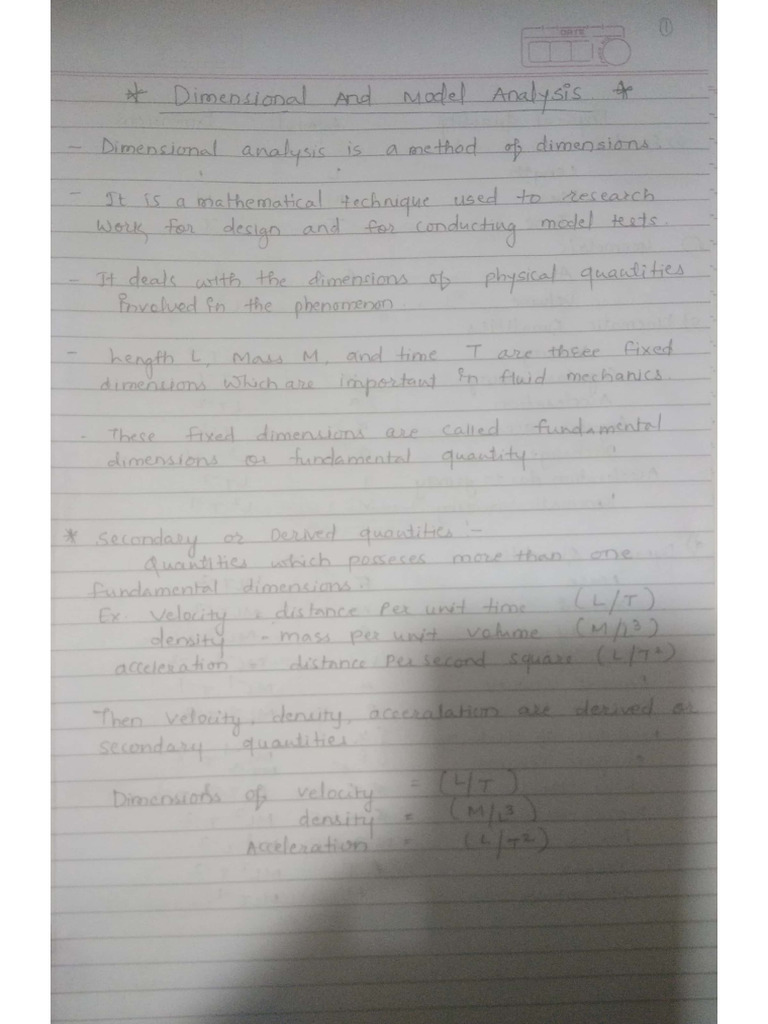 DATE
①
* Dimensional And Model Analysis *
- Dimensional analysis is a method of dimensions.
- It is a mathematical technique used to research
work, for design and for conducting model tests.
- It deals with the dimensions of physical quantities
involved in the phenomenon.
- Length L, Mass M, and time T are three fixed
dimensions which are important in fluid mechanics.
- These fixed dimensions are called fundamental
dimensions or fundamental quantity.
* Secondary or Derived quantities :-
Quantities which posseses more than one
fundamental dimensions.
Ex. Velocity = distance Per unit time (L/T)
density - mass per unit volume (M/L³)
acceleration = distance Per second square (L/T²)
Then velocity, density, acceralation are derived or
secondary quantities.
Dimensions of velocity = (L/T)
density = (M/L³)
Acceleration = (L/T²)